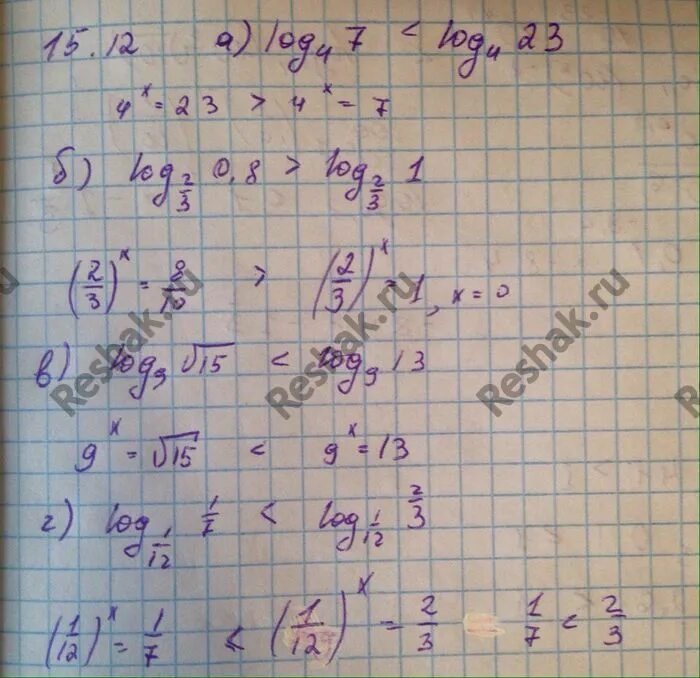 15.12 а) log₄ 7 < log₄ 23
4ˣ = 23 > 4ˣ = 7
б) log_{2/3} 0,8 > log_{2/3} 1
(2/3)ˣ = 8/10 > (2/3)ˣ = 1, x = 0
в) log₉ √15 < log₉ 13
9ˣ = √15 < 9ˣ = 13
г) log_{1/12} 1/7 < log_{1/12} 2/3
(1/12)ˣ = 1/7 < (1/12)ˣ = 2/3 1/7 < 2/3
Reshak.ru
Reshak.ru
Reshak.ru